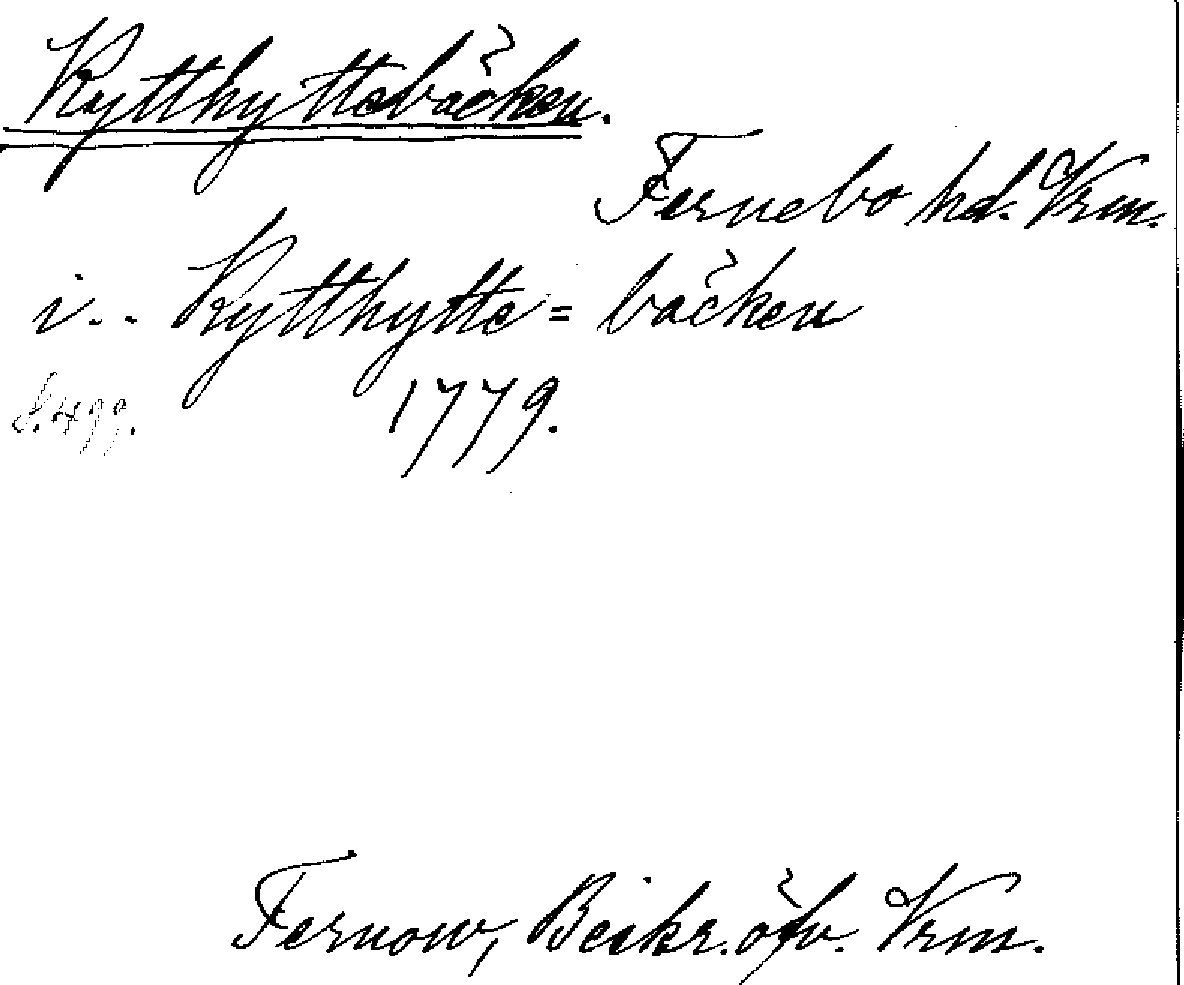 Kytthyttebäcken.
Fernebo hd. Vrm.
i.. Kytthytte=bäcken
S. 499. 1779.
Fernow, Beskr. öfv. Vrm.